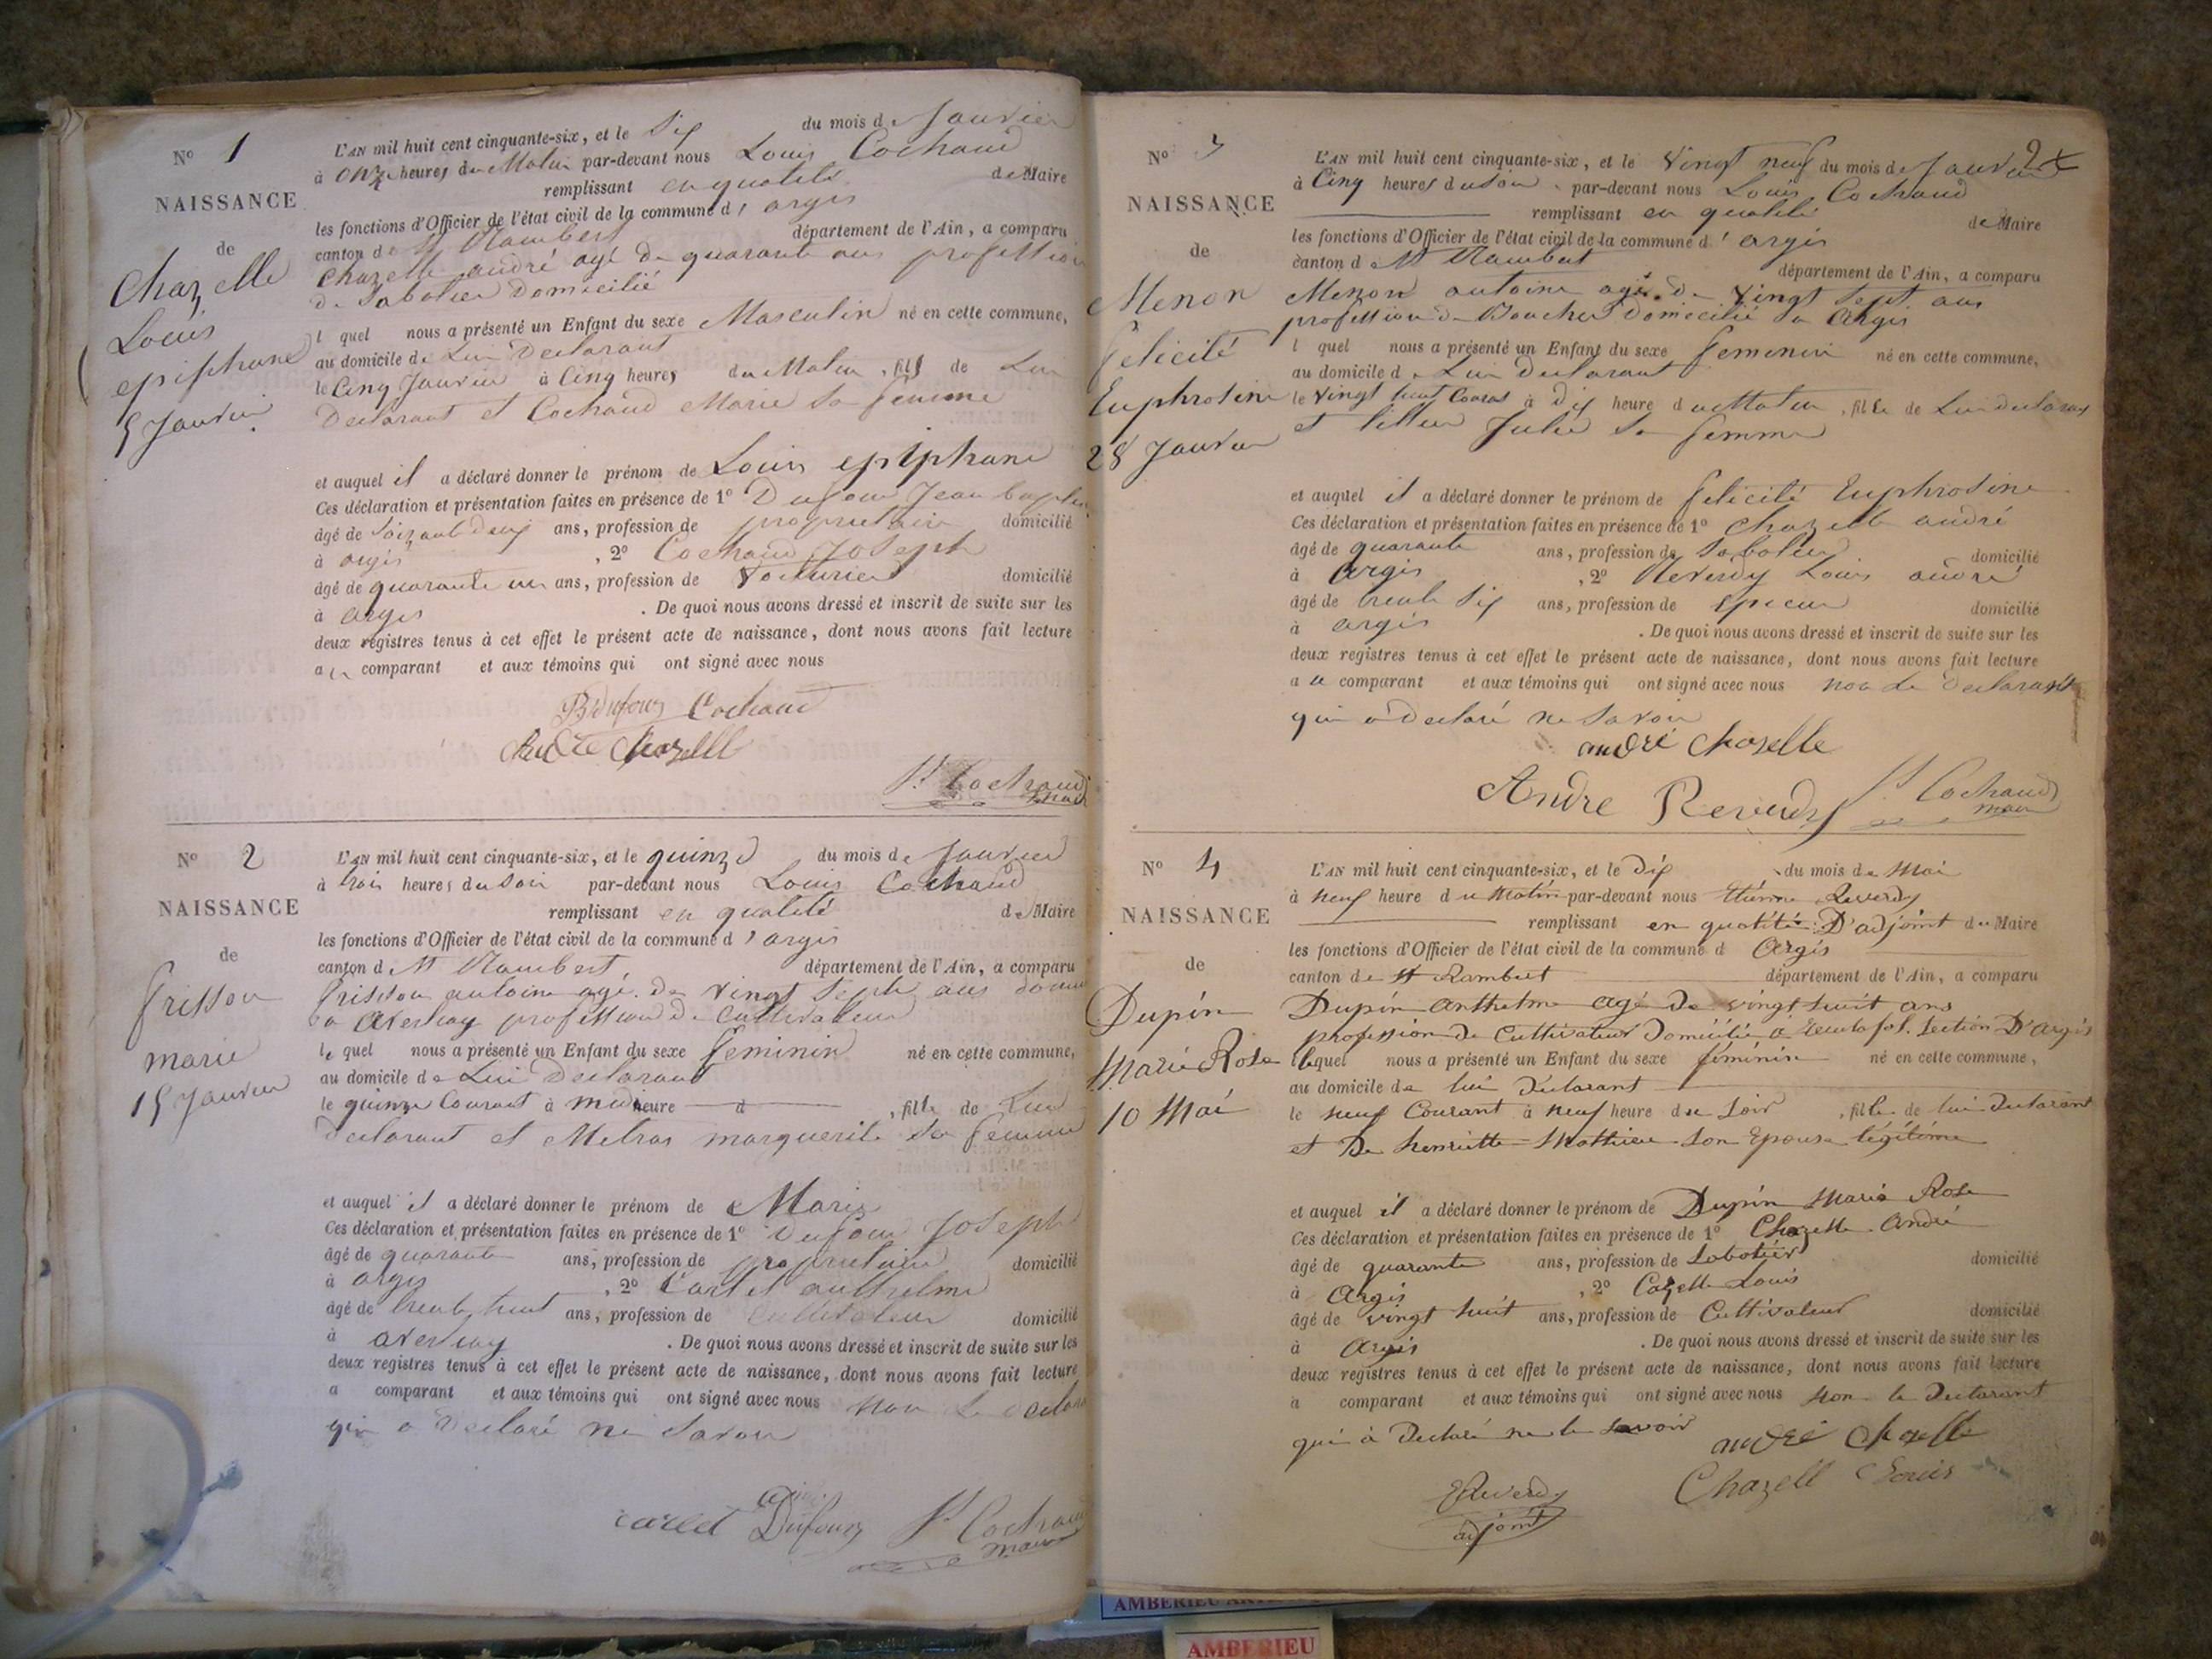 N° 1
NAISSANCE
de
Chazelle
Louis
epiphane
5 Janvier
L'AN mil huit cent cinquante-six, et le Six du mois de Janvier
à onze heures du Matin par-devant nous Louis Cochaud
remplissant en qualité de Maire
les fonctions d'Officier de l'état civil de la commune d'argis
canton de St Rambert département de l'Ain, a comparu
Chazelle andré agé de quarante ans profession
de Sabotier Domicilié
l quel nous a présenté un Enfant du sexe Masculin né en cette commune,
au domicile de Lui Declarant
le Cinq Janvier à Cinq heures du Matin, fils de Lui
Declarant et Cochaud Marie Sa femme
et auquel il a déclaré donner le prénom de Louis epiphane
Ces déclaration et présentation faites en présence de 1° Dufour Jean baptiste
âgé de Soixante deux ans, profession de proprietaire domicilié
à argis, 2° Cochaud Joseph
âgé de quarante un ans, profession de Voiturier domicilié
à argis. De quoi nous avons dressé et inscrit de suite sur les
deux registres tenus à cet effet le présent acte de naissance, dont nous avons fait lecture
au comparant et aux témoins qui ont signé avec nous
B Dufour Cochaud
André Chazelle
L. Cochaud
maire
N° 2
NAISSANCE
de
frisson
marie
15 Janvier
L'AN mil huit cent cinquante-six, et le quinze du mois de Janvier
à trois heures du Soir par-devant nous Louis Cochaud
remplissant en qualité de Maire
les fonctions d'Officier de l'état civil de la commune d'argis
canton d St Rambert département de l'Ain, a comparu
frisson antoine agé de vingt Sept ans
a profession de Cultivateur
le quel nous a présenté un Enfant du sexe feminin né en cette commune,
au domicile de Lui Declarant
le quinze Courant à midi heure d, fille de Lui
Declarant et Melras marguerite Sa femme
et auquel il a déclaré donner le prénom de Marie
Ces déclaration et présentation faites en présence de 1° Dufour Joseph
âgé de quarante ans, profession de proprietaire domicilié
à argis, 2° Carlet anthelme
âgé de trente huit ans, profession de Cultivateur domicilié
à. De quoi nous avons dressé et inscrit de suite sur les
deux registres tenus à cet effet le présent acte de naissance, dont nous avons fait lecture
a comparant et aux témoins qui ont signé avec nous non Le
qui a Declaré ne Savoir
carlet Dufour L. Cochaud
maire
N° 3
NAISSANCE
de
Menon
felicité
Euphrosine
28 Janvier
L'AN mil huit cent cinquante-six, et le Vingt neuf du mois de Janvier
à Cinq heures du Soir par-devant nous Louis Cochaud
remplissant en qualité de Maire
les fonctions d'Officier de l'état civil de la commune d'argis
canton d St Rambert département de l'Ain, a comparu
Menon antoine agé de Vingt Sept ans
profession de Boucher Domicilié a Argis
l quel nous a présenté un Enfant du sexe feminin né en cette commune,
au domicile d Lui Declarant
le Vingt huit Courant à dix heure du Matin, fille de Lui declarant
et Julie Sa femme
et auquel il a déclaré donner le prénom de felicité Euphrosine
Ces déclaration et présentation faites en présence de 1° Chazelle andré
âgé de quarante ans, profession de Sabotier domicilié
à Argis, 2° Reverdy Louis andré
âgé de trente Six ans, profession de Epicier domicilié
à argis. De quoi nous avons dressé et inscrit de suite sur les
deux registres tenus à cet effet le présent acte de naissance, dont nous avons fait lecture
a u comparant et aux témoins qui ont signé avec nous non Le Declarant
qui a Declaré ne Savoir
andré Chazelle
Andre Reverdy L. Cochaud
maire
N° 4
NAISSANCE
de
Dupin
Marie Rose
10 Mai
L'AN mil huit cent cinquante-six, et le Dix du mois de Mai
à neuf heure du Matin par-devant nous Etienne Reverdy
remplissant en qualité D'adjoint du Maire
les fonctions d'Officier de l'état civil de la commune d Argis
canton de St Rambert département de l'Ain, a comparu
Dupin Anthelme agé de vingt huit ans
profession de Cultivateur Domicilié a Section D'Argis
lequel nous a présenté un Enfant du sexe féminin né en cette commune,
au domicile de lui Déclarant
le neuf Courant à neuf heure du Soir, fille de lui Declarant
et De henriette Mathieu Son Epouse légitime
et auquel il a déclaré donner le prénom de Dupin Marie Rose
Ces déclaration et présentation faites en présence de 1° Chazelle André
âgé de quarante ans, profession de Sabotier domicilié
à Argis, 2° Cazelle Louis
âgé de vingt huit ans, profession de Cultivateur domicilié
à Argis. De quoi nous avons dressé et inscrit de suite sur les
deux registres tenus à cet effet le présent acte de naissance, dont nous avons fait lecture
à comparant et aux témoins qui ont signé avec nous non le Declarant
qui à Declaré ne le savoir
andré Chazelle
Chazell Louis
EReverdy
adjoint
AMBERIEU
AMBERIEU